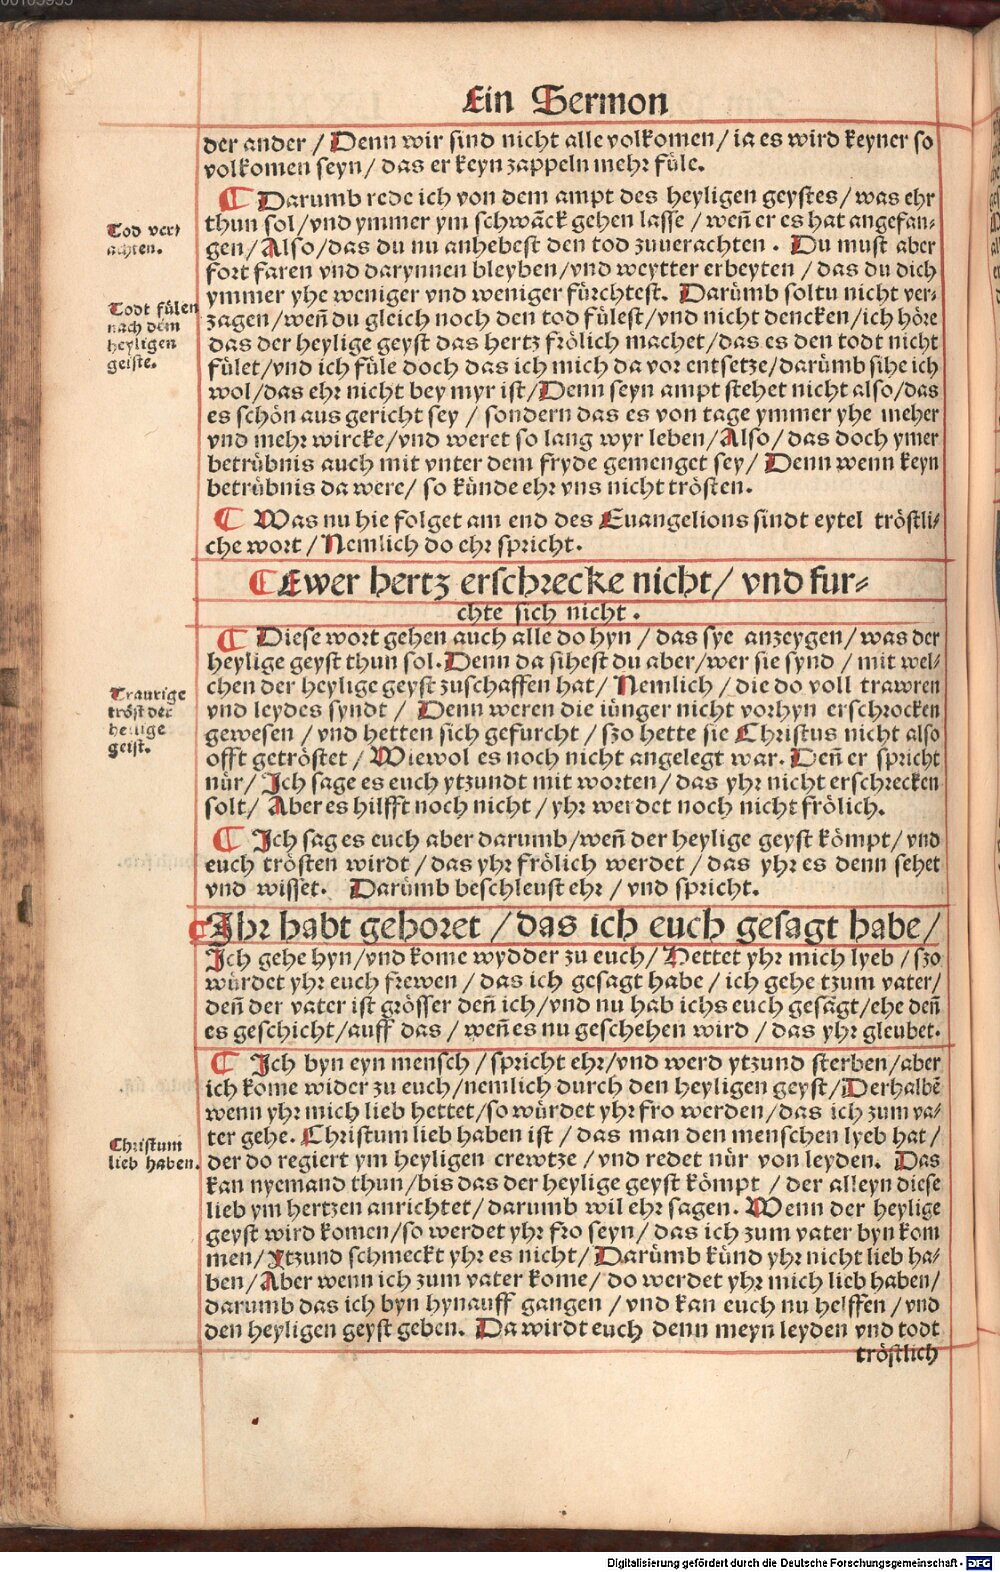 Ein Sermon
der ander / Denn wir sind nicht alle volkomen / ia es wird keyner so
volkomen seyn / das er keyn zappeln mehr füle.
¶ Darumb rede ich von dem ampt des heyligen geystes / was ehr
thun sol / vnd ymmer ym schwãck gehen lasse / weñ er es hat angefan-
gen / Also / das du nu anhebest den tod zuuerachten . Du must aber
fort faren vnd darynnen bleyben / vnd weytter erbeyten / das du dich
ymmer yhe weniger vnd weniger fürchtest. Darümb soltu nicht ver-
zagen / weñ du gleich noch den tod fülest / vnd nicht dencken / ich höre
das der heylige geyst das hertz frölich machet / das es den todt nicht
fület / vnd ich füle doch das ich mich da vor entsetze / darümb sihe ich
wol / das ehr nicht bey myr ist / Denn seyn ampt stehet nicht also / das
es schön aus gericht sey / sondern das es von tage ymmer yhe meher
vnd mehr wircke / vnd weret so lang wyr leben / Also / das doch ymer
betrübnis auch mit vnter dem fryde gemenget sey / Denn wenn keyn
betrübnis da were / so künde ehr vns nicht trösten.
¶ Was nu hie folget am end des Euangelions sindt eytel tröstli-
che wort / Nemlich do ehr spricht.
¶ Ewer hertz erschrecke nicht / vnd fur-
chte sich nicht .
¶ Diese wort gehen auch alle do hyn / das sye anzeygen / was der
heylige geyst thun sol. Denn da sihest du aber / wer sie synd / mit wel-
chen der heylige geyst zuschaffen hat / Nemlich / die do voll trawren
vnd leydes syndt / Denn weren die iünger nicht vorhyn erschrocken
gewesen / vnd hetten sich gefurcht / szo hette sie Christus nicht also
offt getröstet / Wiewol es noch nicht angelegt war. Deñ er spricht
nür / Ich sage es euch ytzundt mit worten / das yhr nicht erschrecken
solt / Aber es hilfft noch nicht / yhr werdet noch nicht frölich.
¶ Ich sag es euch aber darumb / weñ der heylige geyst kömpt / vnd
euch trösten wirdt / das yhr frölich werdet / das yhr es denn sehet
vnd wisset. Darümb beschleust ehr / vnd spricht.
¶ Ihr habt gehoret / das ich euch gesagt habe /
Ich gehe hyn / vnd kome wydder zu euch / Hettet yhr mich lyeb / szo
würdet yhr euch frewen / das ich gesagt habe / ich gehe tzum vater /
deñ der vater ist grösser deñ ich / vnd nu hab ichs euch gesagt / ehe deñ
es geschicht / auff das / weñ es nu geschehen wird / das yhr gleubet.
¶ Ich byn eyn mensch / spricht ehr / vnd werd ytzund sterben / aber
ich kome wider zu euch / nemlich durch den heyligen geyst / Derhalbē
wenn yhr mich lieb hettet / so würdet yhr fro werden / das ich zum va-
ter gehe. Christum lieb haben ist / das man den menschen lyeb hat /
der do regiert ym heyligen crewtze / vnd redet nür von leyden. Das
kan nyemand thun / bis das der heylige geyst kömpt / der alleyn diese
lieb ym hertzen anrichtet / darumb wil ehr sagen. Wenn der heylige
geyst wird komen / so werdet yhr fro seyn / das ich zum vater byn kom
men / Ytzund schmeckt yhr es nicht / Darümb künd yhr nicht lieb ha-
ben / Aber wenn ich zum vater kome / do werdet yhr mich lieb haben /
darumb das ich byn hynauff gangen / vnd kan euch nu helffen / vnd
den heyligen geyst geben. Da wirdt euch denn meyn leyden vnd todt
tröstlich
Tod ver-
achten.
Todt fülen
nach dem
heyligen
geiste.
Traurige
tröst der
heilige
geist.
Christum
lieb haben.
Digitalisierung gefördert durch die Deutsche Forschungsgemeinschaft - DFG